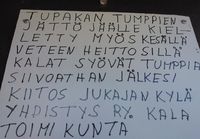 TUPAKAN TUMPPIEN
JÄTTÖ JÄÄLLE KIEL-
LETTY MYÖS KESÄLLÄ
VETEEN HEITTO SILLÄ
KALAT SYÖVÄT TUMPPIA
SIIVOATHAN JÄLKESI
KIITOS JUKAJAN KYLÄ
YHDISTYS RY. KALA
TOIMI KUNTA